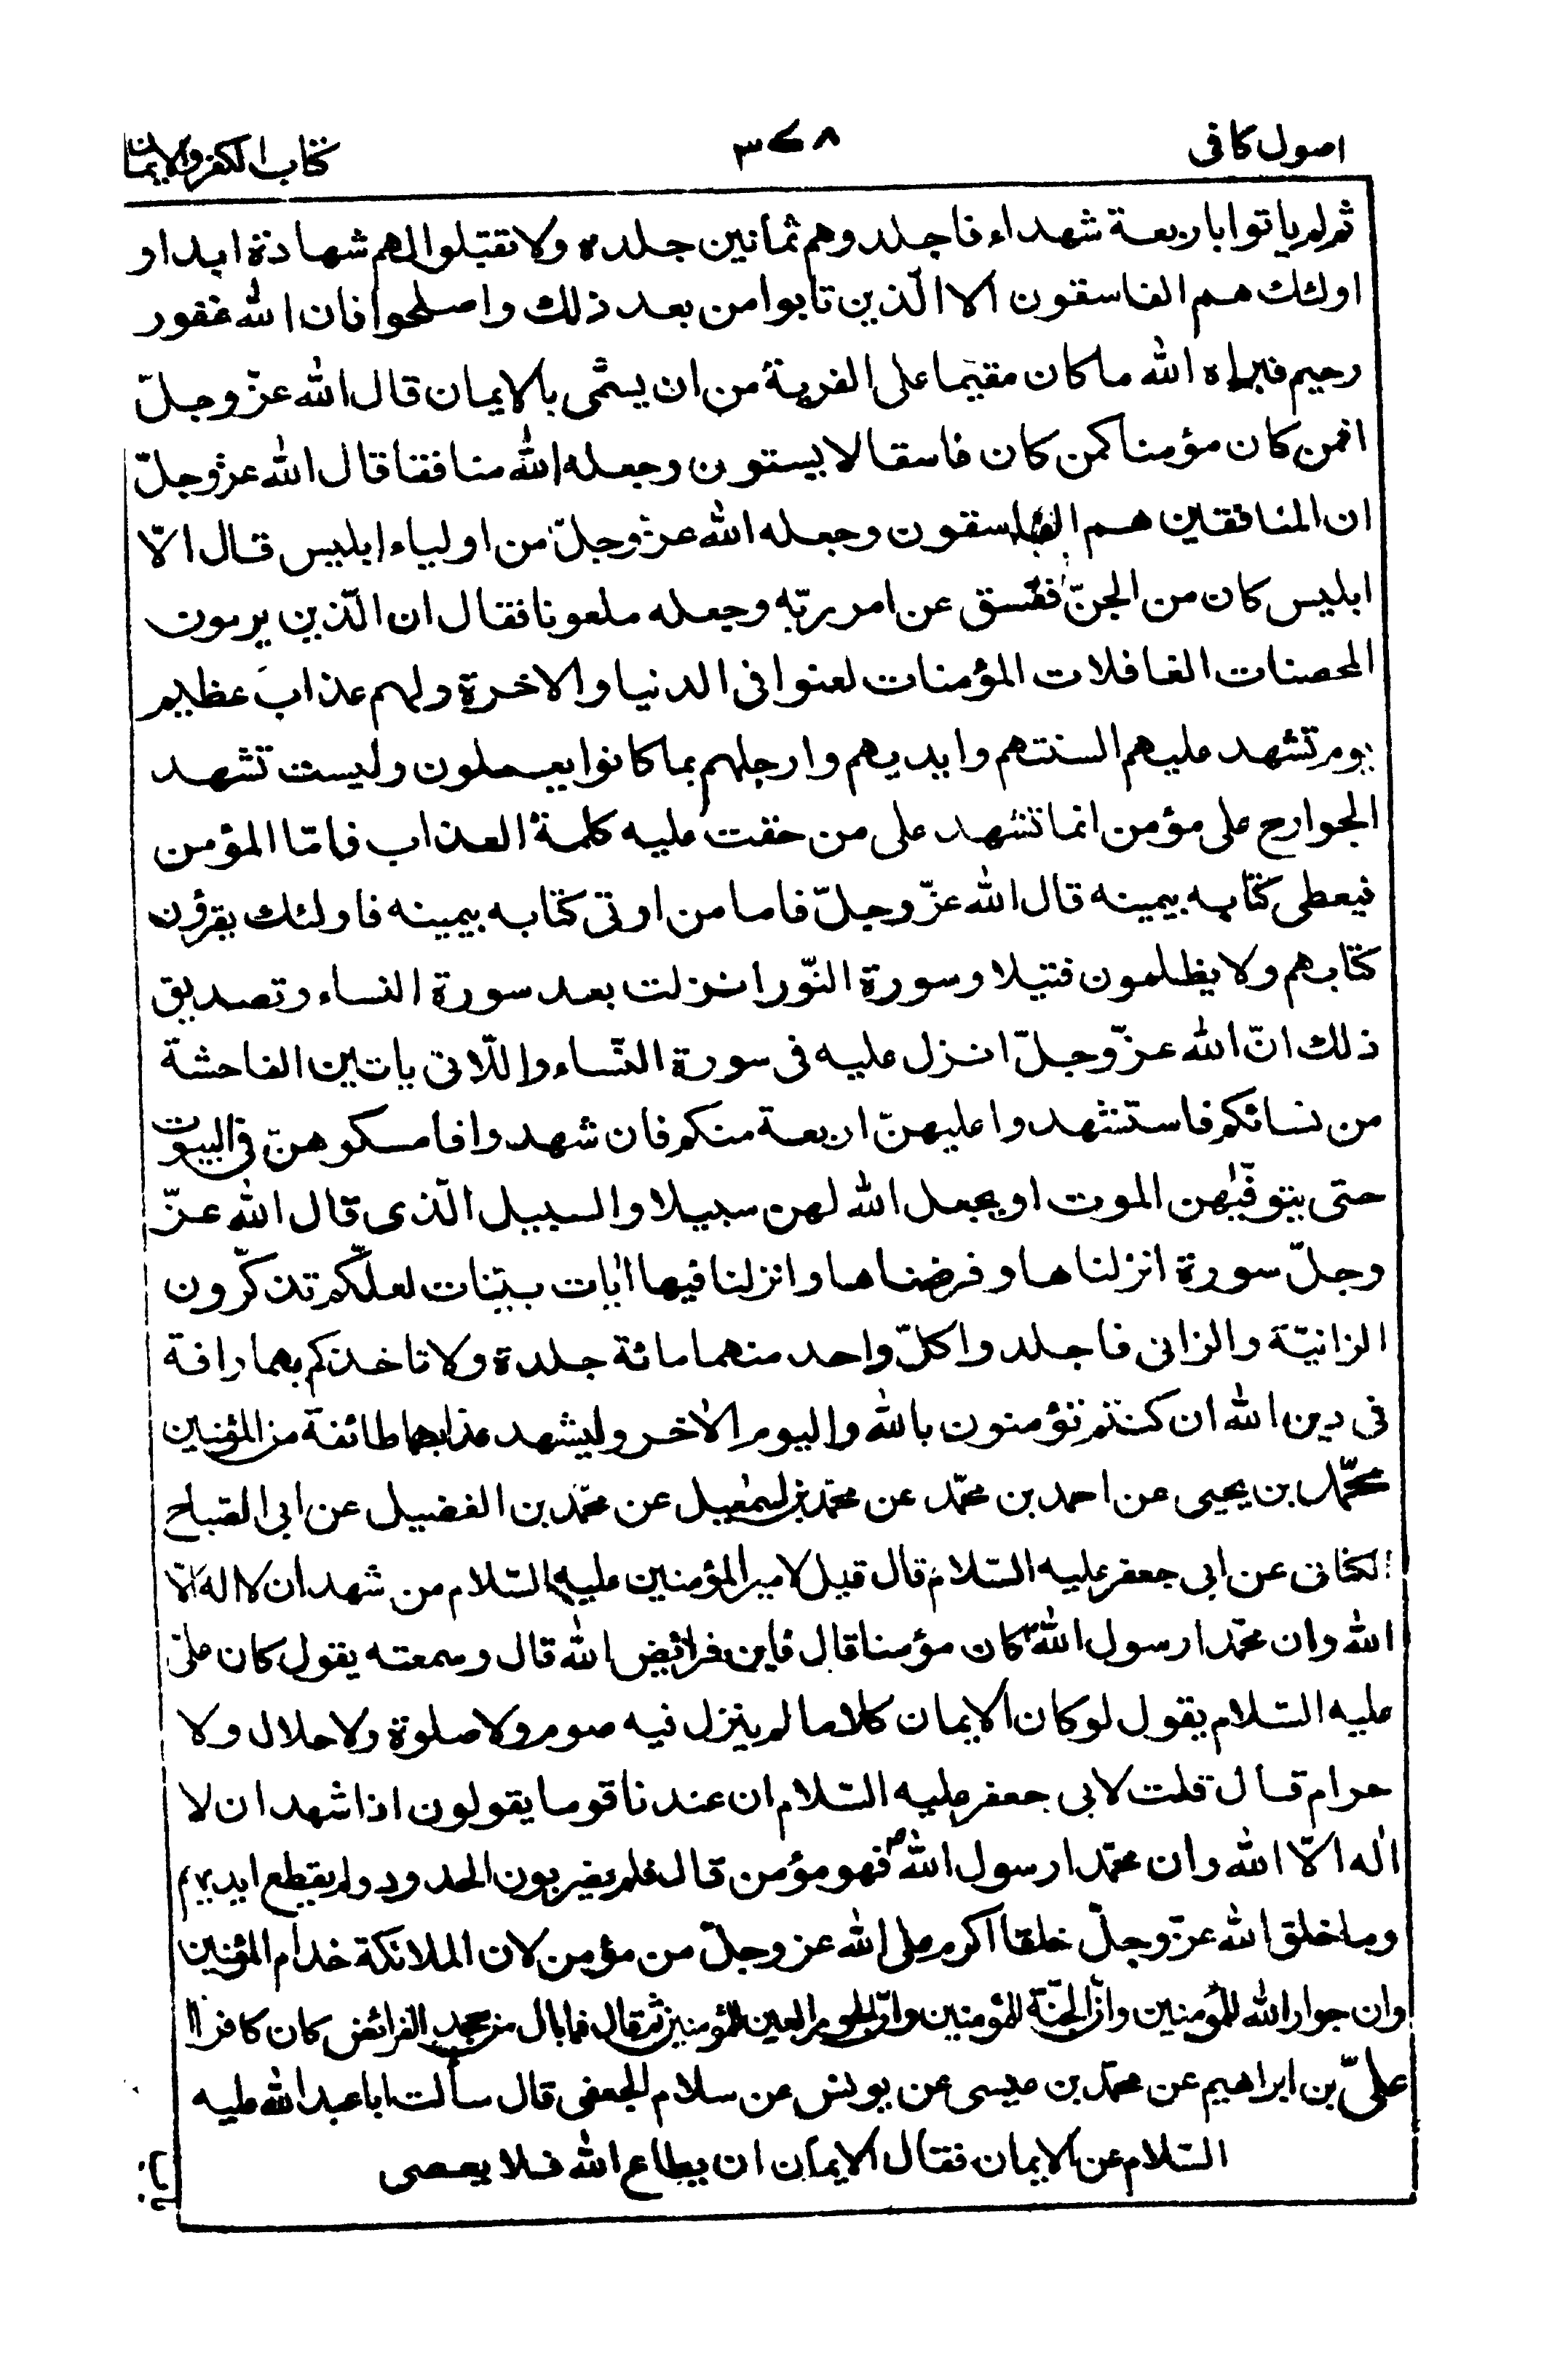 اصول كافى
٣٧٨
كتاب الكفر والايمان
ثم لم ياتوا باربعة شهداء فاجلدوهم ثمانين جلده ولا تقبلوا لهم شهادة ابدا و
اولئك هم الفاسقون الا الّذين تابوا من بعد ذلك واصلحوا فان الله غفور
رحيم فبراه الله ما كان مقيما على الفرية من ان يسمّى بالايمان قال الله عزّ وجلّ
افمن كان مؤمنا كمن كان فاسقا لا يستون وجعله الله منافقا قال الله عزوجلّ
ان المنافقين هم الفاسقون وجعله الله عزوجلّ من اولياء ابليس قال الّا
ابليس كان من الجنّ ففسق عن امر ربّه وجعله ملعونا فقال ان الّذين يرمون
المحصنات الغافلات المؤمنات لعنوا فى الدنيا والاخرة ولهم عذاب عظيم
يوم تشهد عليهم السنتهم وايديهم وارجلهم بما كانوا يعملون وليست تشهد
الجوارح على مؤمن انما تشهد على من حقت عليه كلمة العذاب فامّا المؤمن
فيعطى كتابه بيمينه قال الله عزّ وجلّ فاما من اوتى كتابه بيمينه فاولئك يقرؤن
كتابهم ولا يظلمون فتيلا وسورة النّور انزلت بعد سورة النساء وتصديق
ذلك انّ الله عزّ وجلّ انزل عليه فى سورة النّساء واللّاتى ياتين الفاحشة
من نسائكم فاستشهدوا عليهنّ اربعة منكم فان شهدوا فامسكوهنّ فى البيوت
حتى يتوفّيٰهن الموت او يجعل الله لهن سبيلا والسبيل الّذى قال الله عزّ
وجلّ سورة انزلناها وفرضناها وانزلنا فيها ايات بيّنات لعلّكم تذكّرون
الزانيّة والزانى فاجلدوا كلّ واحد منهما مائة جلدة ولا تاخذكم بهما رافة
فى دين الله ان كنتم تؤمنون بالله واليوم الاخر وليشهد عذابهما طائفة من المؤمنين
محمّد بن يحيى عن احمد بن محمّد عن محمّد بن اسمٰعيل عن محمّد بن الفضيل عن ابى الصّباح
الكنانى عن ابى جعفر عليه السّلام قال قيل لامير المؤمنين عليه السّلام من شهد ان لا اله الّا
الله وان محمّدا رسول الله ص كان مؤمنا قال فاين فرائض الله قال وسمعته يقول كان علىّ
عليه السّلام يقول لو كان الايمان كلاما لم ينزل فيه صوم ولا صلوة ولا حلال ولا
حرام قال قلت لابى جعفر عليه السّلام ان عندنا قوما يقولون اذا شهد ان لا
اله الّا الله وان محمّدا رسول الله ص فهو مؤمن قال فلم يضربون الحدود ولم يقطع ايديهم
وما خلق الله عزّ وجلّ خلقا اكرم على الله عز وجلّ من مؤمن لان الملائكة خدام المؤمنين
وان جوار الله للمؤمنين وان الجنّة للمؤمنين وانّ الحور العين للمؤمنين ثم قال فما بال من جحد الفرائض كان كافرا
علىّ بن ابراهيم عن محمّد بن عيسى عن يونس عن سلام الجعفى قال سألت ابا عبد الله عليه
السّلام عن الايمان فقال الايمان ان يطاع الله فلا يعصى